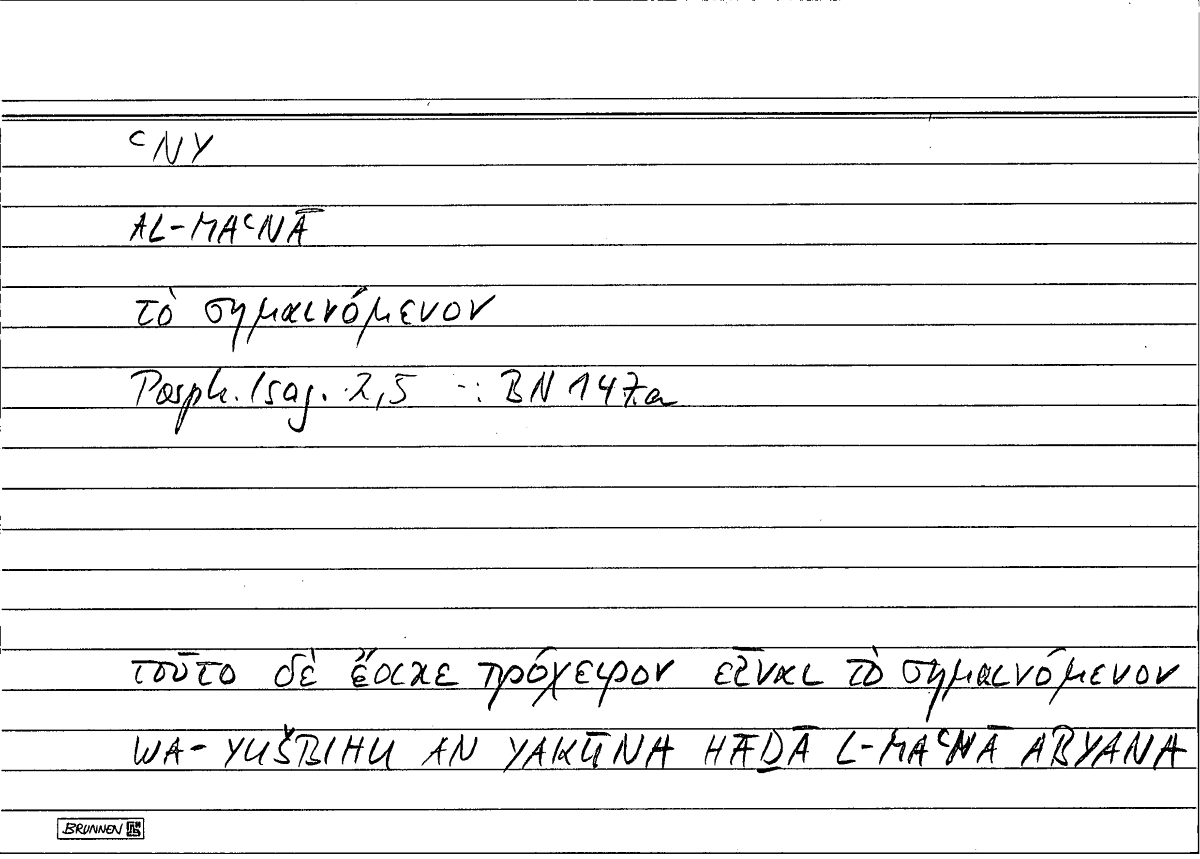 ʿNY
AL-MAʿNĀ
τὸ σημαινόμενον
Porph. Isag. 2,5 -: BN 147a
τοῦτο δὲ ἔοικε πρόχειρον εἶναι τὸ σημαινόμενον
WA-YUŠBIHU AN YAKŪNA HĀḎĀ L-MAʿNĀ ABYANA
BRUNNEN